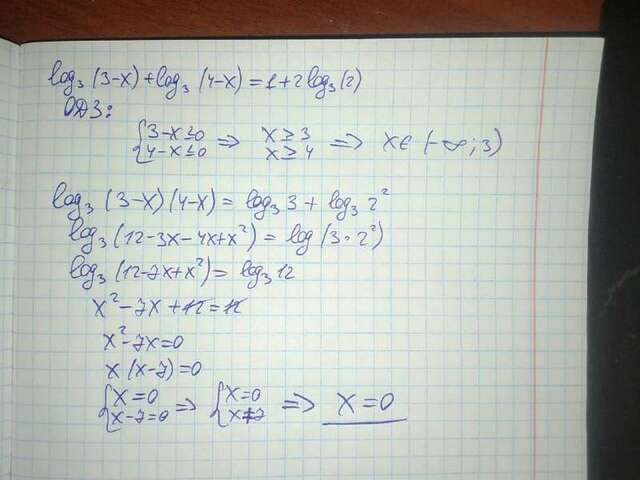 log₃(3-x)+log₃(4-x)=1+2log₃(2)
ОДЗ:
{3-x≤0 => x≥3 => x∈(-∞;3)
{4-x≤0 x≥4
log₃(3-x)(4-x)=log₃3+log₃2²
log₃(12-3x-4x+x²)=log(3·2²)
log₃(12-7x+x²)=log₃12
x²-7x+12=12
x²-7x=0
x(x-7)=0
{x=0 => {x=0 => x=0
{x-7=0 {x≠7